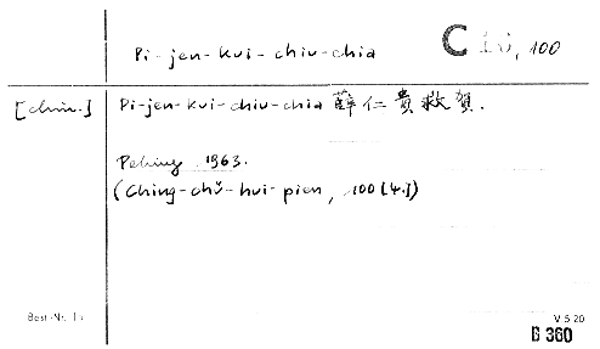 Pi-jen-kui-chiu-chia
C 16, 100
[chin.]
Pi-jen-kui-chiu-chia 薛仁貴救賀.
Peking 1963.
(Ching-chŭ-hui-pien, 100 [4.])
Best.-Nr. 1
V 5 20
B 360